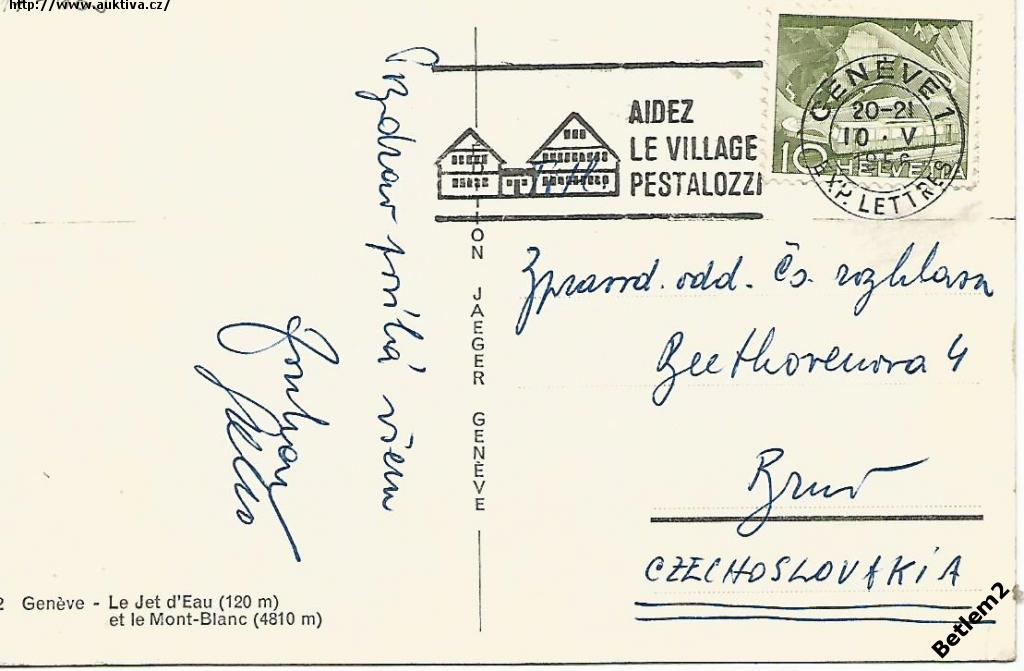 http://www.auktiva.cz/
Pozdrav posílá všem
AIDEZ
LE VILLAGE
PESTALOZZI
GENÈVE 1
20-21
10 · V
1956
EXP. LETTRES
10 HELVETIA
EDITION JAEGER GENÈVE
Zpravod. odd. Čs. rozhlasu
Beethovenova 4
Brno
CZECHOSLOVAKIA
2 Genève - Le Jet d'Eau (120 m)
et le Mont-Blanc (4810 m)
Betlem2